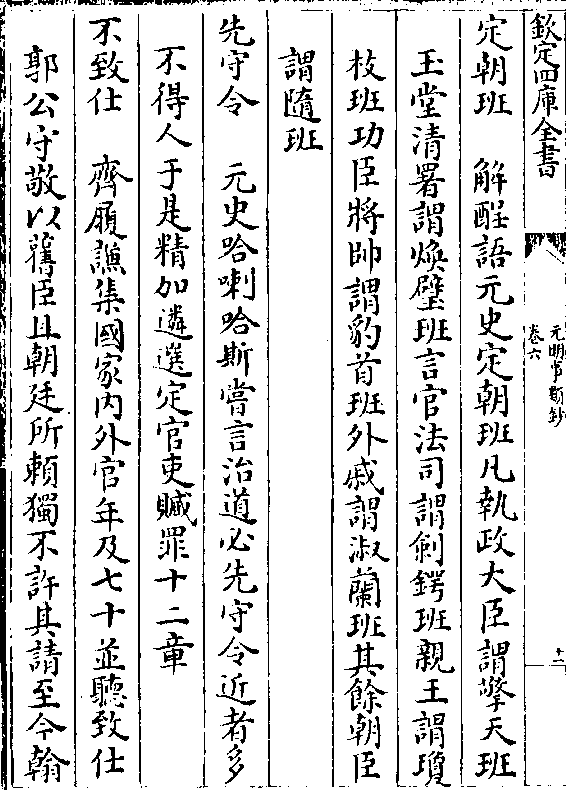 欽定四庫全書
元明事類鈔
卷六
十二
定朝班　解酲語元史定朝班凡執政大臣謂擎天班
玉堂清署謂煥璧班言官法司謂劍鍔班親王謂瓊
枝班功臣將帥謂豹首班外戚謂淑蘭班其餘朝臣
謂隨班
先守令　元史哈喇哈斯嘗言治道必先守令近者多
不得人于是精加遴選定官吏贓罪十二章
不致仕　齊履謙集國家内外官年及七十並聽致仕
郭公守敬以舊臣且朝廷所賴獨不許其請至今翰